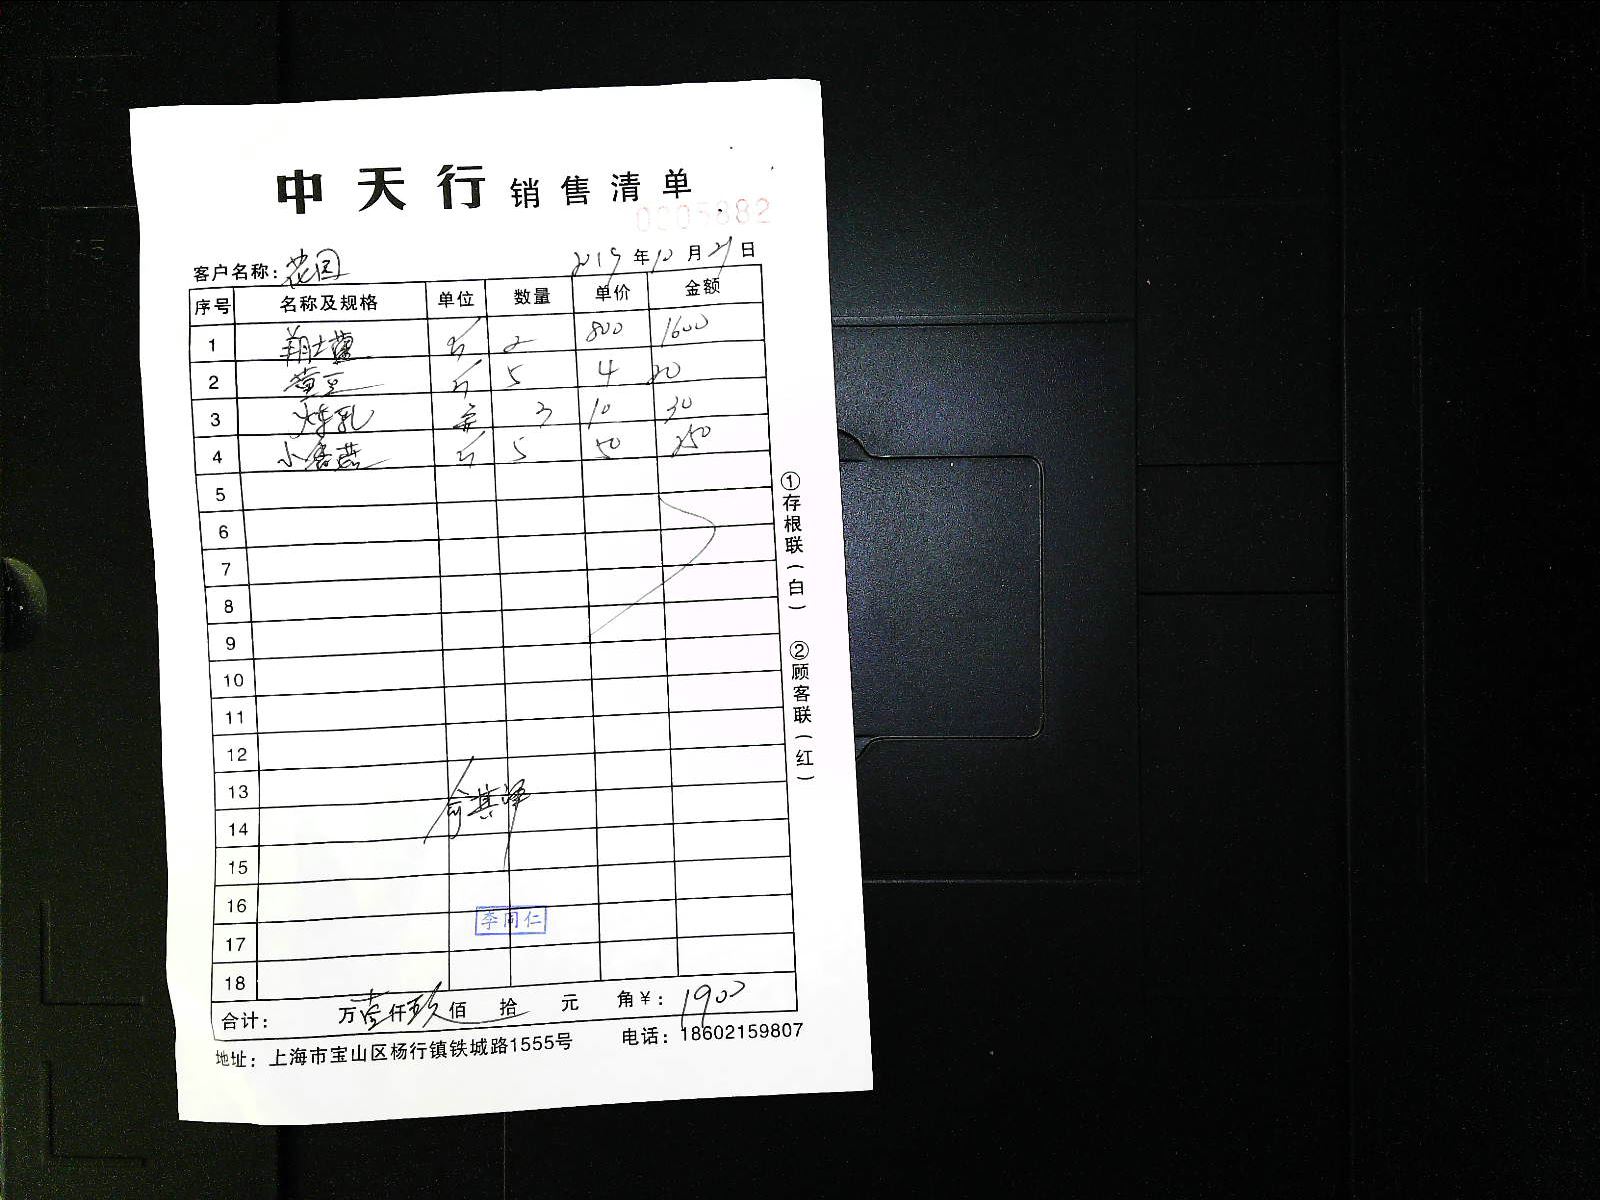 中天行 销售清单
0205882
客户名称：花园 2019年10月21日
序号 名称及规格 单位 数量 单价 金额
1 斤 2 800 1600
2 黄豆 斤 5 4 20
3 炼乳 3 10 30
4 小唐菇 斤 5 50 250
5
6
7
8
9
10
11
12
13
14
15
16
17
18
俞其泽
李同仁
合计： 万壹仟玖佰 拾 元 角￥：1900
地址：上海市宝山区杨行镇铁城路1555号 电话：18602159807
①存根联（白） ②顾客联（红）